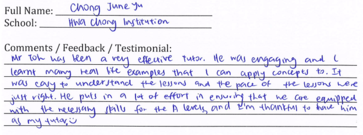 Full Name: Chong June Yu
School: Hwa Chong Institution
Comments / Feedback / Testimonial:
Mr Toh was been a very effective tutor. He was engaging and I
learnt many real life examples that I can apply concepts to. It
was easy to understand the lessons and the pace of the lessons were
just right. He puts in a lot of effort in ensuring that we are equipped
with the necessary skills for the A levels, and I'm thankful to have him
as my tutor